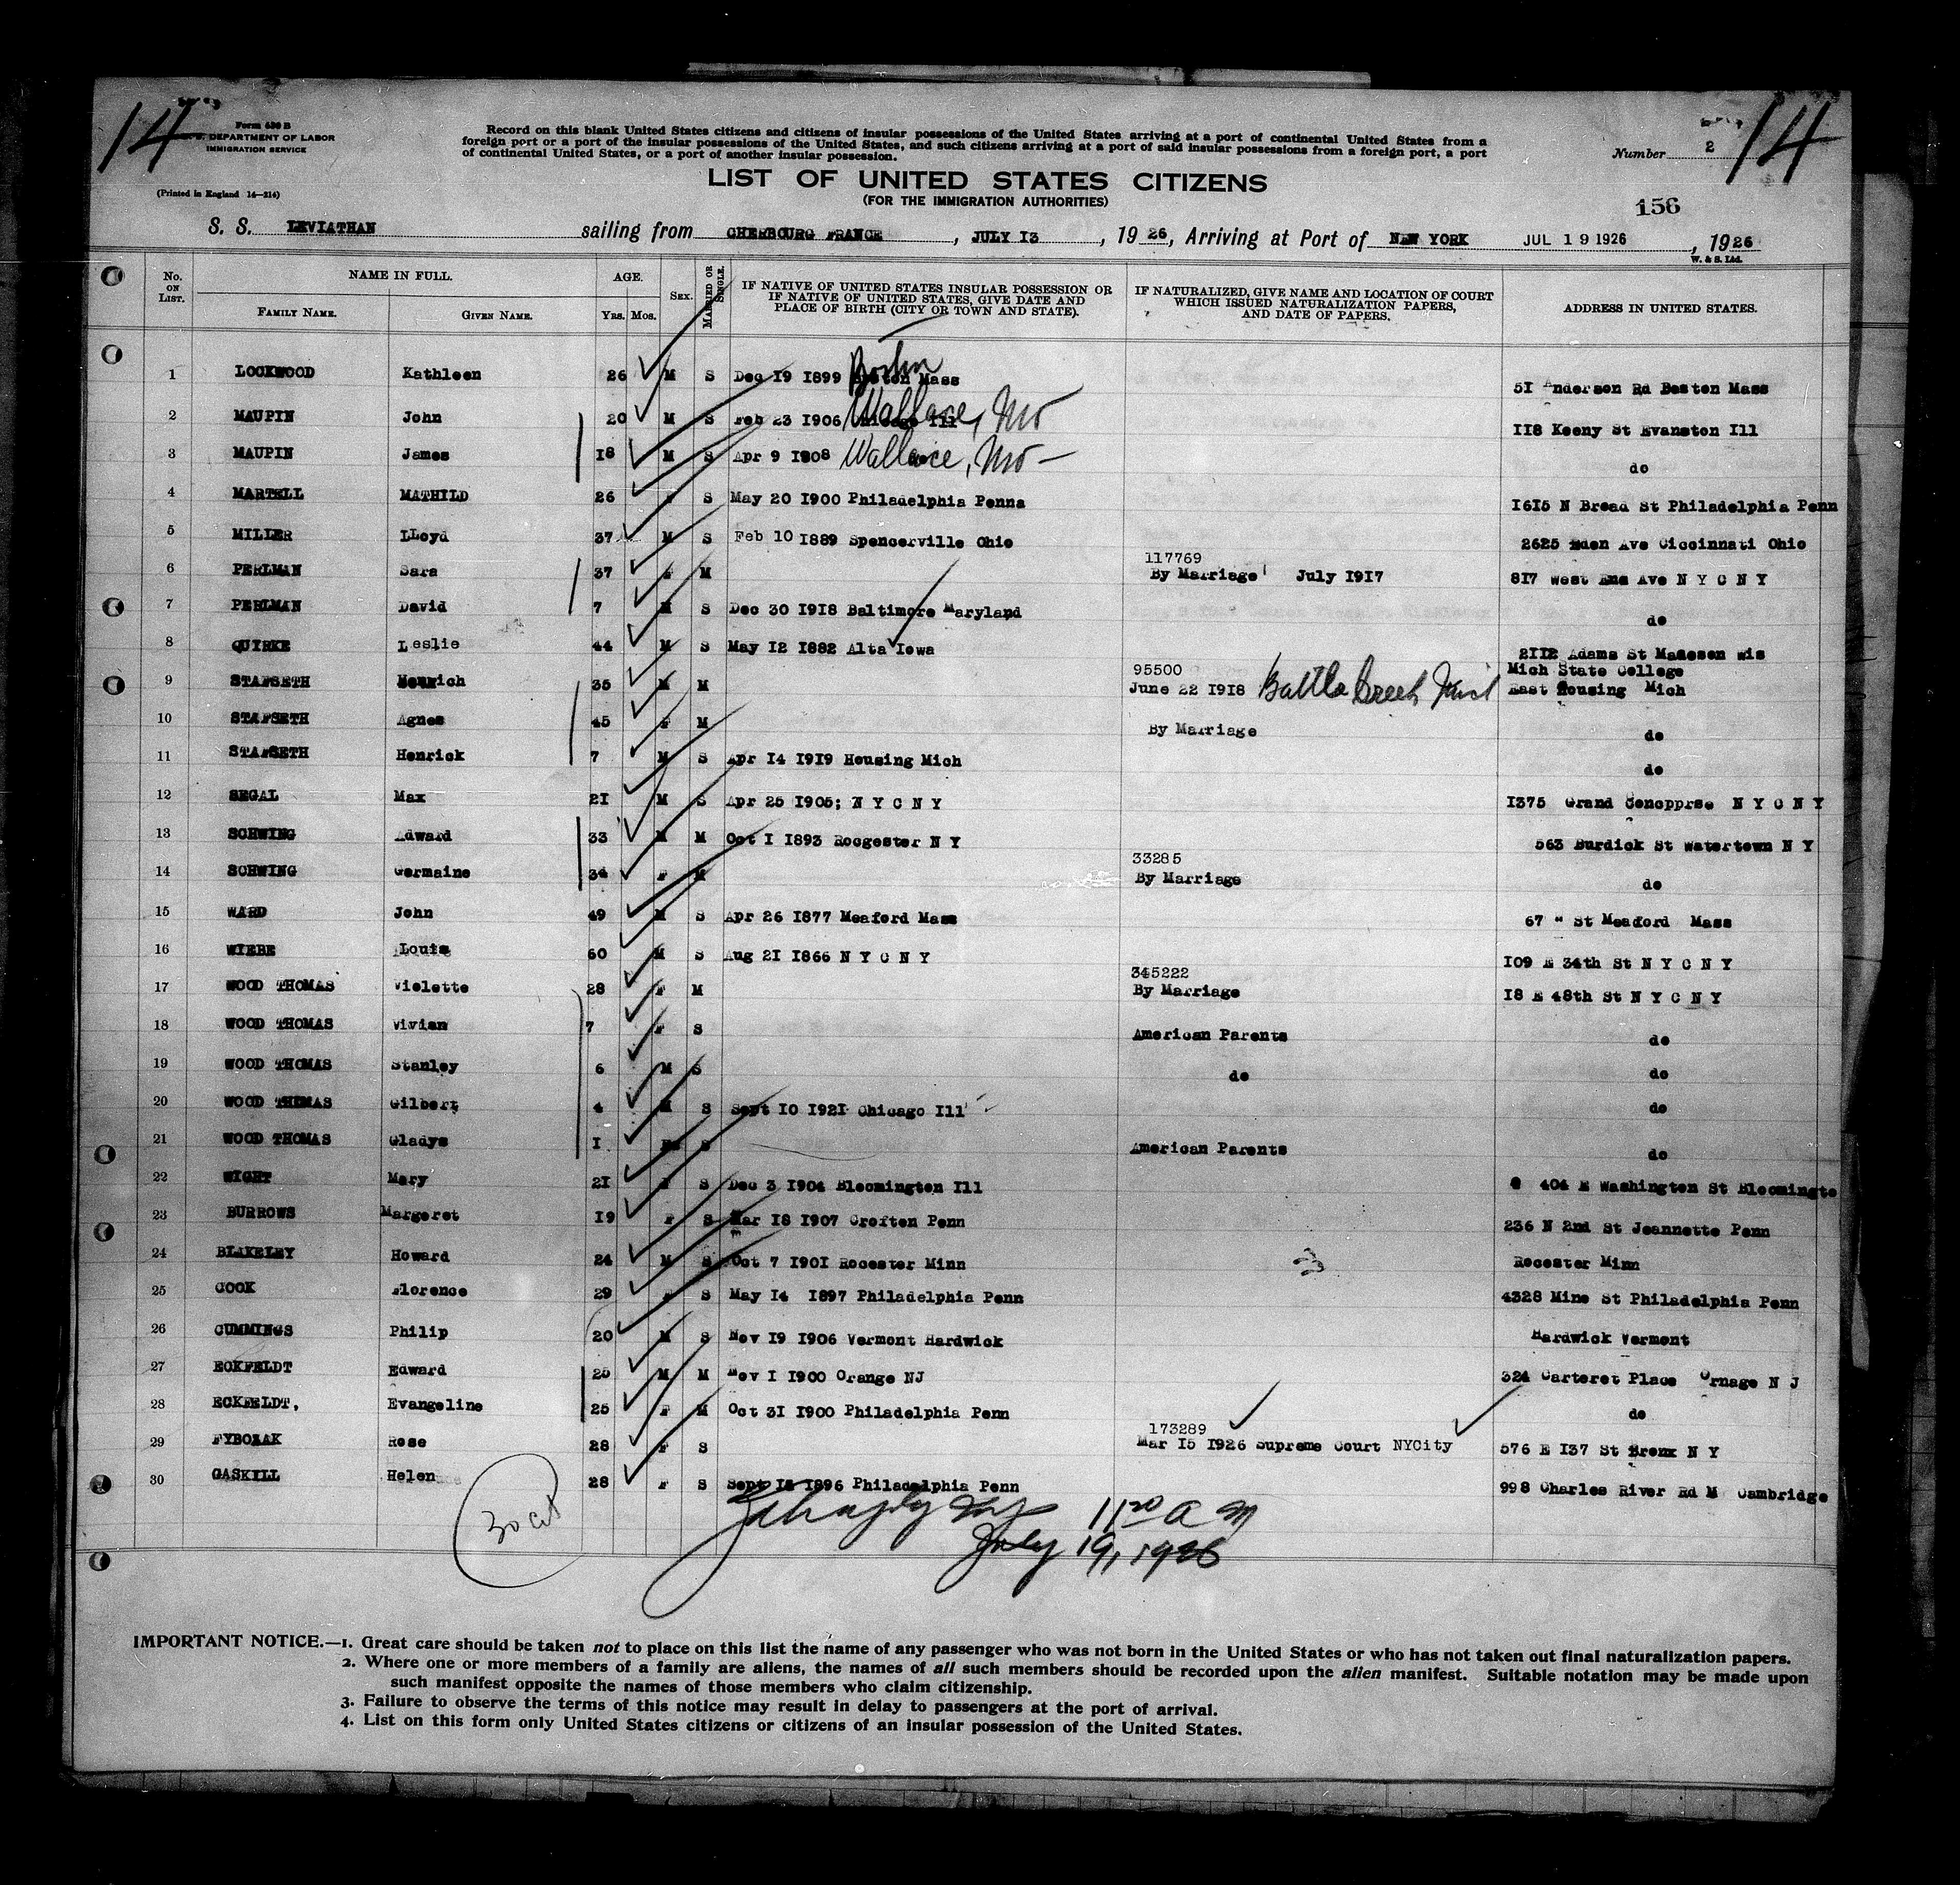 14
14
Form 630 B
U. S. DEPARTMENT OF LABOR
IMMIGRATION SERVICE
(Printed in England 14—214)
Record on this blank United States citizens and citizens of insular possessions of the United States arriving at a port of continental United States from a
foreign port or a port of the insular possessions of the United States, and such citizens arriving at a port of said insular possessions from a foreign port, a port
of continental United States, or a port of another insular possession.
Number 2
LIST OF UNITED STATES CITIZENS
(FOR THE IMMIGRATION AUTHORITIES)
156
S. S. LEVIATHAN sailing from CHERBOURG FRANCE, JULY I3, 19 26, Arriving at Port of NEW YORK JUL 19 1926, 1926
W. & S. Ltd.
No. ON LIST. NAME IN FULL. FAMILY NAME. GIVEN NAME. AGE. YRS. MOS. SEX. MARRIED OR SINGLE. IF NATIVE OF UNITED STATES INSULAR POSSESSION OR IF NATIVE OF UNITED STATES, GIVE DATE AND PLACE OF BIRTH (CITY OR TOWN AND STATE). IF NATURALIZED, GIVE NAME AND LOCATION OF COURT WHICH ISSUED NATURALIZATION PAPERS, AND DATE OF PAPERS. ADDRESS IN UNITED STATES.
1 LOCKWOOD Kathleen 26 M S Dec I9 I899 Boston Mass 5I Anderson Rd Boston Mass
2 MAUPIN John 20 M S Feb 23 I906 Chicago Ill Wallace, Mo II8 Keeny St Evanston Ill
3 MAUPIN James I8 M S Apr 9 I908 Wallace, Mo — do
4 MARTELL MATHILD 26 F S May 20 I900 Philadelphia Penna I6I5 N Broad St Philadelphia Penn
5 MILLER LLoyd 37 M S Feb 10 I889 Spencerville Ohio 2625 Eden Ave Ciccinnati Ohio
6 PERLMAN Sara 37 F M 117769 By Marriage July I9I7 8I7 West End Ave N Y C N Y
7 PERLMAN David 7 M S Dec 30 I9I8 Baltimore Maryland do
8 QUIRKE Leslie 44 M S May I2 I882 Alta Iowa 2II2 Adams St Madeson wis
9 STAFSETH 35 M M 95500 June 22 I9I8 Battle Creek Mich Mich State College East Housing Mich
10 STAFSETH Agnes 45 F M By Marriage do
11 STAFSETH Henrick 7 M S Apr I4 I9I9 Housing Mich do
12 SEGAL Max 2I M S Apr 25 I905; N Y C N Y I375 Grand Concpprse N Y C N Y
13 SCHWING Edward 33 M M Oct I I893 Rocgester N Y 563 Burdick St Watertown N Y
14 SCHWING Germaine 34 F M 33285 By Marriage do
15 WARD John 49 M S Apr 26 I877 Meaford Mass 67 " St Meadford Mass
16 WIEBE Louis 60 M S Aug 2I I866 N Y C N Y I09 E 34th St N Y C N Y
17 WOOD THOMAS Violette 28 F M 345222 By Marriage I8 E 48th St N Y C N Y
18 WOOD THOMAS Vivian 7 F S American Parents do
19 WOOD THOMAS Stanley 6 M S do do
20 WOOD THOMAS Gilbert 4 M S Sept I0 I92I Chicago Ill do
21 WOOD THOMAS Gladys I S American Parents do
22 WIGHT Mary 2I F S Dec 3 I904 Bloomington Ill 404 E Washington St Bloomingto
23 BURROWS Margeret I9 F S Mar I8 I907 Croften Penn 236 N 2nd St Jeannette Penn
24 BLAKELEY Howard 24 M S Oct 7 I90I Rocester Minn Rocester Minn
25 COOK Florence 29 F S May I4 I897 Philadelphia Penn 4328 Mine St Philadelphia Penn
26 CUMMINGS Philip 20 M S Nov I9 I906 Vermont Hardwick Hardwick Vermont
27 ECKFELDT Edward 25 M M Nov I I900 Orange NJ 324 Carteret Place Ornage N J
28 ECKFELDT, Evangeline 25 F M Oct 3I I900 Philadelphia Penn do
29 FYBOZAK Rose 28 F S 173289 Mar I5 I926 Supreme Court NYCity 576 E I37 St Bronx N Y
30 GASKILL Helen 28 F S Sept I896 Philadelphia Penn 998 Charles River Rd M Cambridge
11 20 a m
July 19, 1926
IMPORTANT NOTICE.—1. Great care should be taken not to place on this list the name of any passenger who was not born in the United States or who has not taken out final naturalization papers.
2. Where one or more members of a family are aliens, the names of all such members should be recorded upon the alien manifest. Suitable notation may be made upon
such manifest opposite the names of those members who claim citizenship.
3. Failure to observe the terms of this notice may result in delay to passengers at the port of arrival.
4. List on this form only United States citizens or citizens of an insular possession of the United States.